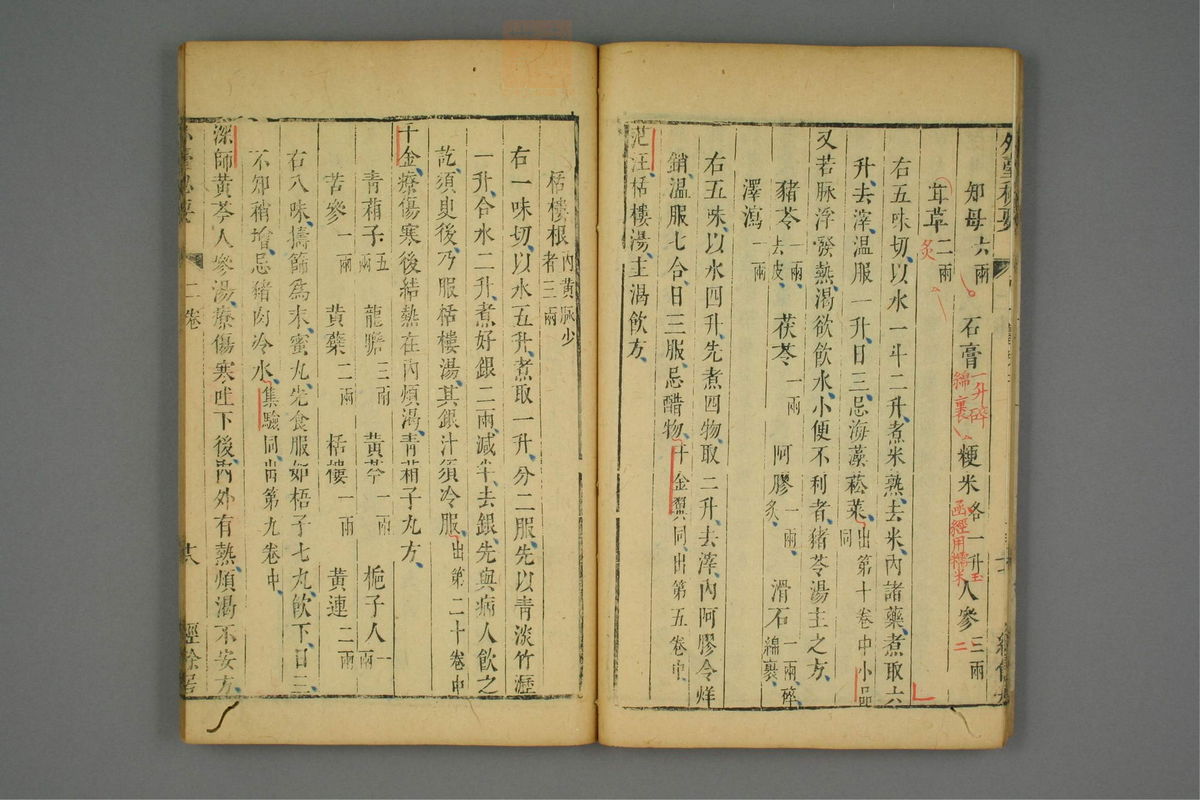 外臺秘要
知母六兩 石膏一升碎綿裹 粳米一升 人參三兩
玉函經用糯米
二
甘草二兩炙
右五味切以水一斗二升煮米熟去米內諸藥煮取六
升去滓溫服一升日三忌海藻菘菜出第十卷中小品同
又若脉浮發熱渴欲飲水小便不利者猪苓湯主之方
豬苓一兩去皮 茯苓一兩 阿膠一兩炙 滑石一兩碎綿裹
澤瀉一兩
右五味以水四升先煮四物取二升去滓內阿膠令烊
銷溫服七合日三服忌醋物千金翼同出第五卷中
范汪栝樓湯主渴飲方
栝樓根內黃脉少者三兩
右一味切以水五升煮取一升分二服先以青淡竹瀝
一升合水二升煮好銀二兩減半去銀先與病人飲之
訖須臾後乃服栝樓湯其銀汁須冷服出第二十卷中
千金療傷寒後結熱在內煩渴青葙子丸方
青葙子五兩 龍膽三兩 黃芩一兩 梔子人一兩
苦參一兩 黃蘗二兩 栝樓一兩 黃連二兩
右八味擣篩爲末蜜丸先食服如梧子七丸飲下日三
不知稍增忌猪肉冷水集驗同出第九卷中
深師黃芩人參湯療傷寒吐下後內外有熱煩渴不安方
外臺秘要 二卷 十八 經餘居